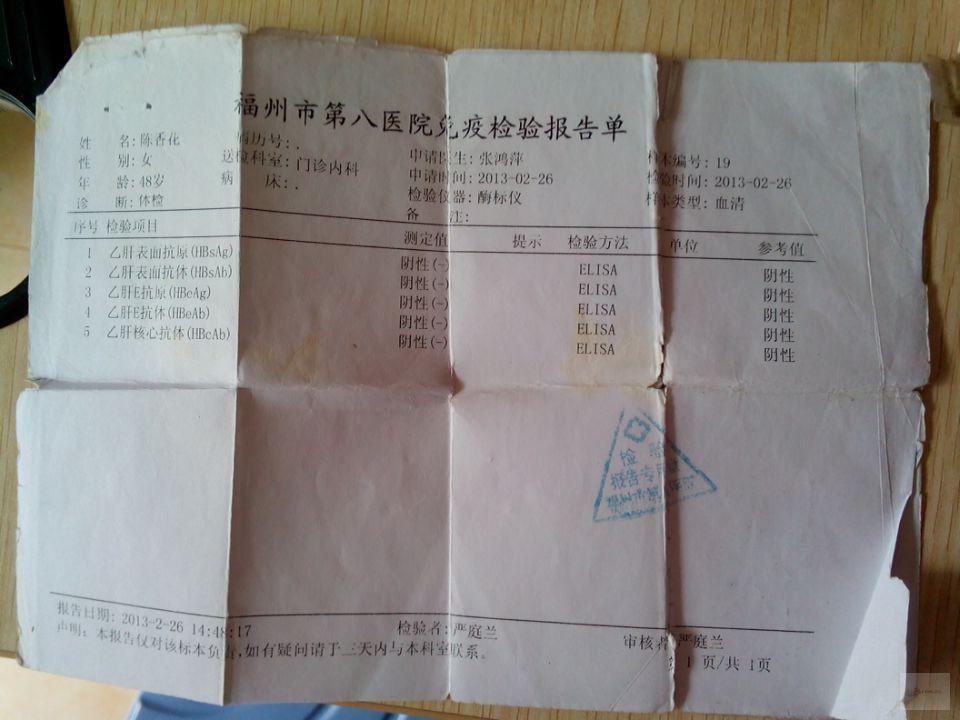 福州市第八医院免疫检验报告单
姓 名: 陈香花 病历号: .
性 别: 女 送检科室: 门诊内科 申请医生: 张鸿萍 样本编号: 19
年 龄: 48岁 病 床: . 申请时间: 2013-02-26 检验时间: 2013-02-26
诊 断: 体检 检验仪器: 酶标仪 样本类型: 血清
备 注:
序号 检验项目 测定值 提示 检验方法 单位 参考值
1 乙肝表面抗原(HBsAg) 阴性(-) ELISA 阴性
2 乙肝表面抗体(HBsAb) 阴性(-) ELISA 阴性
3 乙肝E抗原(HBeAg) 阴性(-) ELISA 阴性
4 乙肝E抗体(HBeAb) 阴性(-) ELISA 阴性
5 乙肝核心抗体(HBcAb) 阴性(-) ELISA 阴性
检 验
报告专用章
报告日期: 2013-2-26 14:48:17 检验者: 严庭兰 审核者: 严庭兰
声明: 本报告仅对该标本负责,如有疑问请于三天内与本科室联系。 第 1 页/共 1页